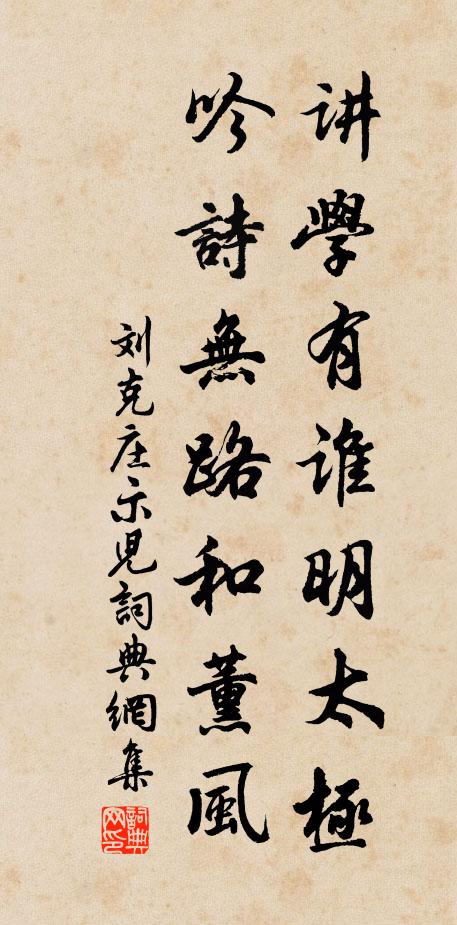 讲学有谁明太极
吟詩無路和薰風
刘克庄示児詞典網集
詞典网印